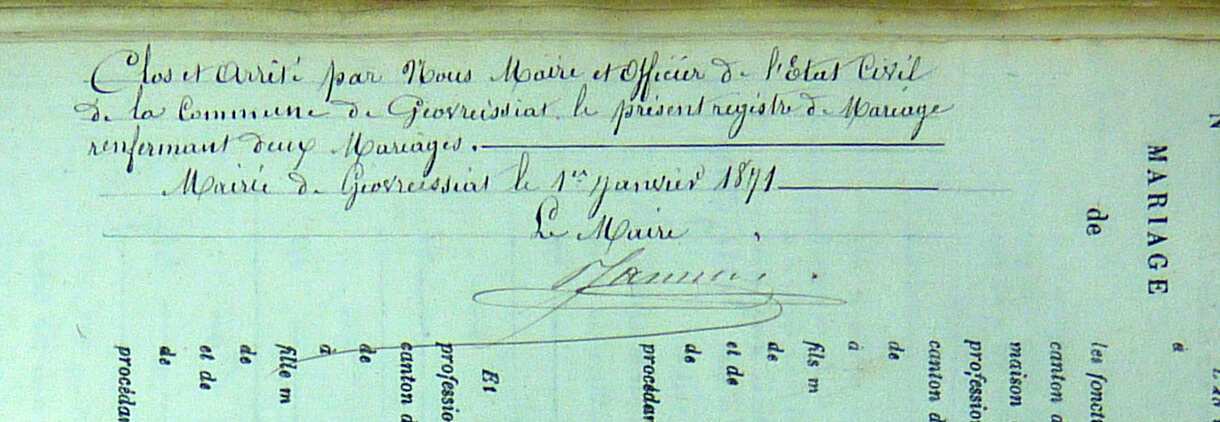 Clos et Arrêté par Nous Maire et Officier de l'Etat Civil
de la Commune de Géovreissiat le présent registre de Mariage
renfermant deux Mariages.
Mairie de Géovreissiat le 1er Janvier 1871
Le Maire
MARIAGE
de
et
les fonct
canton d
maison
profession
canton d
de
à
fils m
de
et de
de
procédan
Et
professio
canton d
de
à
fille m
de
et de
de
procédan